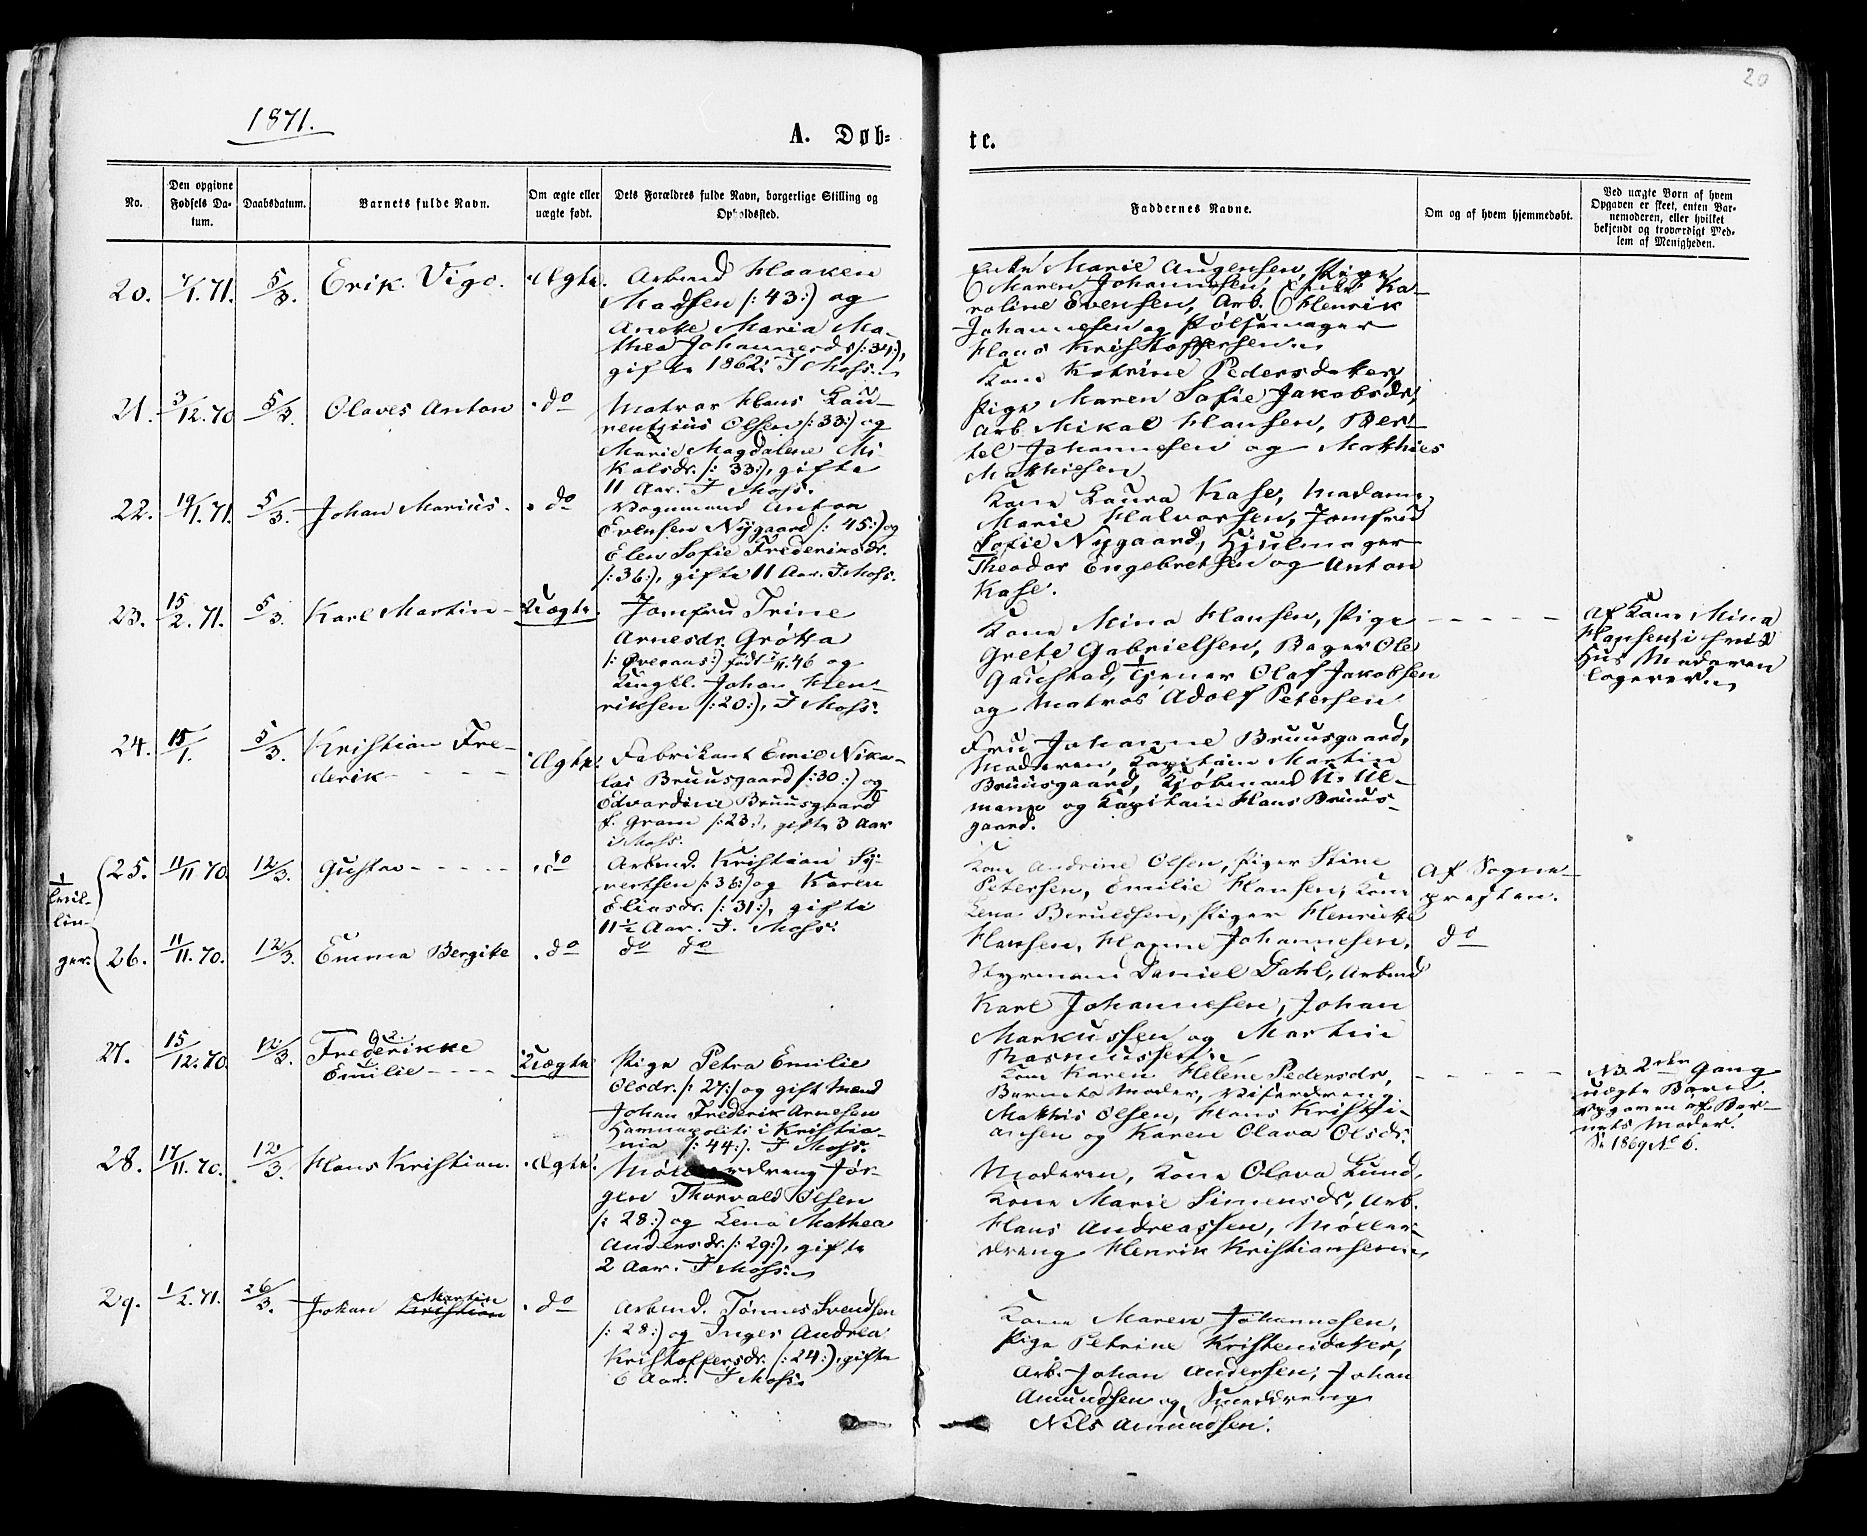 20
1871.
A. Døb-
te.
No.
Den opgivne
Fødsels Da-
tum.
Daabsdatum.
Barnets fulde Navn.
Om ægte eller
uægte født.
Dets Forældres fulde Navn, borgerlige Stilling og
Opholdssted.
Faddernes Navne.
Om og af hvem hjemmedøbt.
Ved uægte Børn af hvem
Opgaven er skeet, enten Bar-
nemoderen, eller hvilket
bekjendt og troværdigt Med-
lem af Menigheden.
20. 7/1. 71. 5/3. Erik Vigo. Ægte.
Arbmd Haaken
Madsen /: 43:/ og
Anette Maria Ma-
thea Johannesds /:34:/,
gifte 1862. I Moss.
Enke Marie Augensen, Pige
Maren Johannesen, Enke Ka-
roline Evensen, Arb. Henrik
Johannesen og Pølsemager
Hans Kristoffersen
21. 3/12. 70 5/3. Olaves Anton do
Matros Hans Lau-
rentzius Olsen /: 33:/ og
Marie Magdalene Mi-
kalsdr. /: 33:/, gifte
11 Aar. I Moss.
Kone Katrine Pedersdatter,
Pige Maren Sofie Jakobsdr,
Arb. Mikal Hansen, Ber-
tel Johannesen og Mathies
Mathiesen
22. 19/1. 71. 5/3. Johan Marius. do
Vognmand Anton
Evensen Nygaard /: 45:/ og
Elen Sofie Frederiksdr.
/:36:/, gifte 11 Aar. I Moss.
Kone Laura Kase, Madame
Marie Halvorsen, Jomfru
Sofie Nygaard, Hjulmager
Theodor Engebretsen og Anton
Kase.
23. 15/2. 71. 5/3. Karl Martin - Uægte.
Jomfru Trine
Arnesdr. Grøtta
/: Øveraas:/ født 7/11. 46 og
Ungkl. Johan Hen-
riksen /:20:/, I Moss.
Kone Mina Hansen, Pige
Grete Gabrielsen, Bager Ole
Gaustad, Tjener Olaf Jakobsen
og Matros Adolf Petersen
- - - - -
Af Kone Mina
Hansen, i hvis
Hus Moderen
logerer
24. 15/1. 5/3. Kristian Fre-
derik - - - - Ægte.
Fabrikant Emil Niko-
lai Bruusgaard /:30:/ og
Edvardine Bruusgaard
f. Gram /:23:/, gifte 3 Aar
i Moss.
Fru Johanne Bruusgaard,
Moderen, Kapitain Martin
Bruusgaard, Kjøbmand N. Ul-
mann og Kapitain Hans Bruus-
gaard.
Tvil-
lin-
ger.
25. 11/11 70. 12/3. Gustav - - - - - do
Arbmd. Kristian Sy-
vertsen /:36:/ og Karen
Eliasdr. /:31:/, gifte
11½ Aar. I Moss.
Kone Andrine Olsen, Piger Stine
Petersen, Emilie Hansen, Kone
Lena Berulsen, Piger Henrikke
Af Sogne-
presten.
26. 11/11. 70. 12/3. Emma Bergite do
do do
Hansen, Hanne Johannesen,
Styrmand Daniel Dahl, Arbmd
Karl Johannesen, Johan
Markussen og Martin
Rasmussen
do
27. 15/12. 70. 12/3. Frederikke
Emilie - - - - Uægte
Pige Petra Emilie
Olsdr. /: 27:/ og gift Mand
Johan Frederik Arnesen
Kammapoliti i Kristia-
nia /: 44:/. I Moss.
Kone Karen Helene Pedersdr,
Barnets Moder,
Mathis Olsen, Hans Kristi-
ansen og Karen Olava Olsdr.
- - - - -
NB. 2den Gang
uægte Barn
Opgaven af Bar-
nets Moder.
Se 1869 No 6.
28. 17/11. 70. 12/3. Hans Kristian. Ægte.
Møllerdreng Jør-
gen Thorvald Olsen
/: 28:/ og Lena Mathea
Andersdr. /: 29:/, gifte
2 Aar. I Moss.
Moderen, Kone Olava Lund,
Kone Marie Simensdr, Arb.
Hans Andreassen, Møller-
dreng Henrik Kristiansen
29. 1/2. 71. 26/3. Johan Kristian Martin do
Arbmd. Tønnes Svendsen
/: 28:/ og Inger Andrea
Kristoffersdr. /:24:/, gifte
6 Aar. I Moss.
Kone Maren Johannesen,
Pige Petrine Kristensdatter,
Arb. Johan Andersen, Johan
Amundsen og Smeddreng
Nils Amundsen.